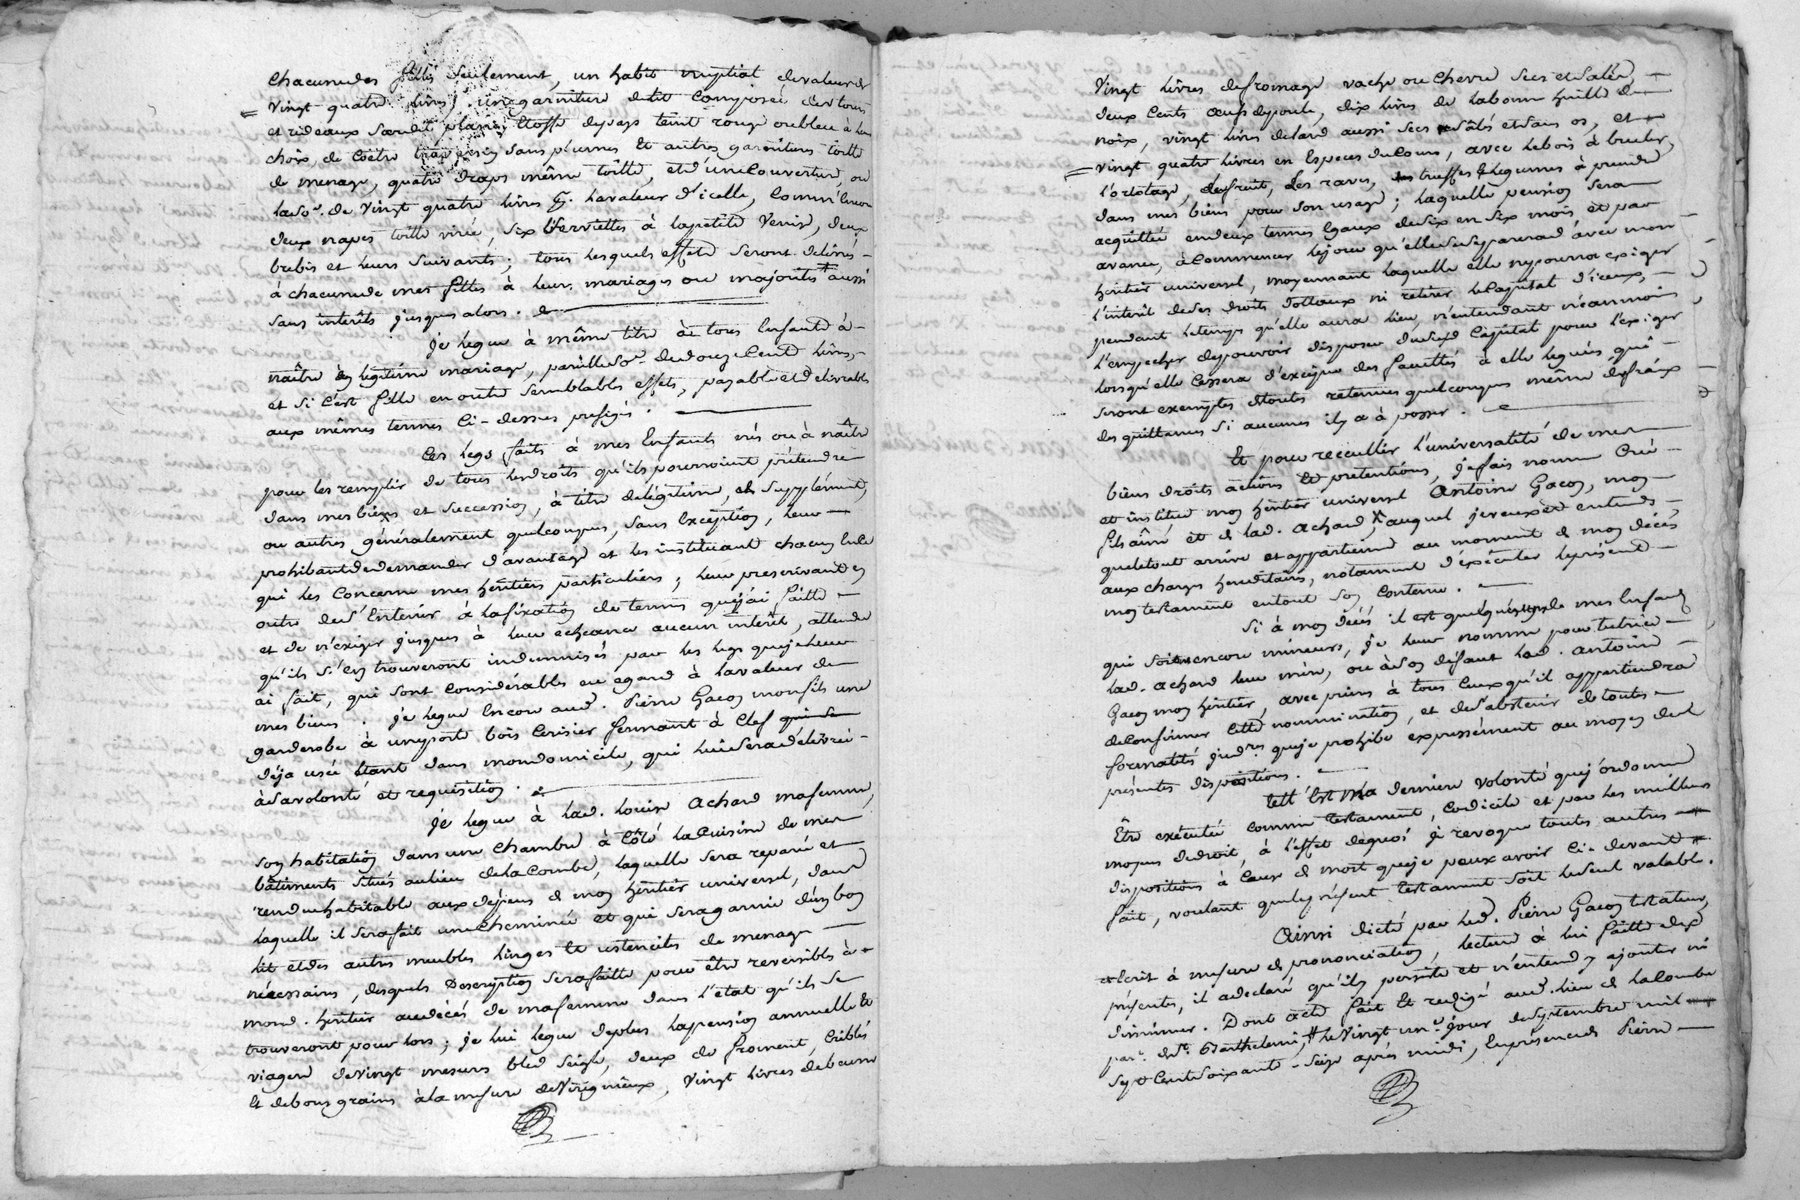 chacune des filles seulement, un habit nuptial de valeur de
vingt quatre livres, une garniture de lit composée de tour
et rideaux sandit plann, étoffe du pays teint rouge ou bleu à leur
choix, de coetre traversin sans plumes et autres garnitures toille
de menage, quatre draps même toille, et d'une couverture, ou
la so.e de vingt quatre livres p.r la valeur d'icelle, comm'encor
deux napes toille virée, six serviettes à la petite Venise, deux
brebis et leurs suivants; tous lesquels effets seront delivrés
à chacune de mes filles à leurs mariages ou majorités aussi
sans interêts jusques alors.
je legue à même titre à tous Enfants à
naître en legitime mariage, pareille so.e de douze cents livres,
et si c'est fille en outre semblables effets, payables et delivrables
aux mêmes termes ci-dessus prefigés.
Ces legs faits à mes Enfants nés ou à naître
pour les remplir de tous les droits qu'ils pourroient prétendre
dans mes biens et succession, à titre de légitime, de supplément,
ou autres généralement quelconques, sans exception, leur
prohibant de demander d'avantage et les instituant chacun en ce
qui les concerne mes héritiers particuliers; leur prescrivant en
outre de s'en tenir à la fixation de termes que j'ai faitte
et de n'exiger jusques à leur echeance aucun interêt, attendu
qu'ils s'en trouveront indemnisés par les legs que je leur
ai fait, qui sont considérables eu egard à la valeur de
mes biens. je legue encore aud. Pierre Gacon mon fils une
garderobe à une porte bois cerisier fermant à clef qui se
déja usée étant dans mon domicile, qui lui sera delivrée
à sa volonté et requisition.
je legue à lad. Louise Achard ma femme,
son habitation dans une chambre à côté la cuisine de mes
bâtiments situés au lieu de la Combe, laquelle sera reparée et
rendue habitable aux dépens de mon héritier universel, dans
laquelle il sera fait une cheminée et qui sera garnie d'un bon
lit et des autres meubles linges et ustenciles de menage
nécessaires, desquels description sera faitte pour être reversibles à
mond. héritier au décés de ma femme dans l'etat qu'ils se
trouveront pour lors; je lui legue de plus la pension annuelle et
viagere de vingt mesures bled seigle, deux de froment, criblés
et de bons grains à la mesure de Virignieux, vingt livres de beurre
vingt livres de fromage vache ou chevre secs et salés,
deux cents œufs de poule, dix livres de la bonne huille de
noix, vingt livres de lard aussi secs salés et sans os, et
vingt quatre livres en especes du cours, avec le bois à bruler,
l'ortolage, le fruit, les raves, les truffes & legumes à prendre
dans mes biens pour son usage; laquelle pension sera
acquittée en deux termes egaux de six en six mois et par
avance, à commencer le jour qu'elle se separera d'avec mon
heritier universel, moyennant laquelle elle ne pourra exiger
l'interêt de ses droits dottaux ni retirer le capital d'iceux,
pendant le temps qu'elle aura lieu, n'entendant néanmoins
l'empecher de pouvoir disposer dud. capital pour l'exiger
lorsqu'elle cessera d'exciper des facultés à elle leguées, qui
seront exemptes de toutes retenues quelconques même de frais
des quittances si aucunes il y a à passer.
Et pour recueillir l'universalité de mes
biens droits actions et pretentions, je fais nomme créé
et institue mon héritier universel Antoine Gacon, mon
fils aîné et de lad. Achard, auquel je veux et entends
que le tout arrive et appartienne au moment de mon décés
aux charges hereditaires, notamment d'exécuter le présent
mon testament en tout son contenu.
Si à mon décés il est quelqu'uns de mes Enfants
qui soient encore mineurs, je leur nomme pour tutrice
lad. Achard leur mère, ou à son défaut led. Antoine
Gacon mon héritier, avec prieres à tous ceux qu'il appartiendra
de confirmer cette nommination, et de s'abstenir de toutes
formalités jud.res que je prohibe expressément au moyen des
présentes dispositions.
telle est ma derniere volonté que j'ordonne
être exécutée comme testament, codicile et par les meilleurs
moyens de droit, à l'effet de quoi je revoque toutes autres
dispositions à cause de mort que je peux avoir ci-devant
fait, voulant que le présent testament soit le seul valable.
Ainsi dicté par led. Pierre Gacon testateur,
et ecrit à mesure de prononciation, lecture à lui faitte des
présentes, il a declaré qu'il y persiste et n'entend y ajouter ni
diminuer. Dont acte fait et redigé aud. lieu de la Combe
par.e de St. Barthelemi, le vingt un.e jour de septembre mil
sept cent soixante-seize après midi, en présence de Pierre